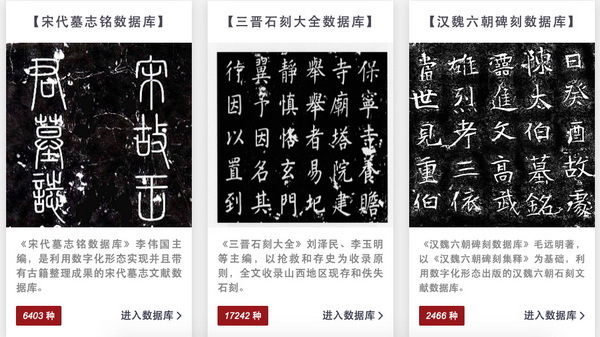 【宋代墓志铭数据库】
宋故王
君墓誌
《宋代墓志铭数据库》李伟国主
编，是利用数字化形态实现并且带
有古籍整理成果的宋代墓志文献数
据库。
6403 种
进入数据库 >
【三晋石刻大全数据库】
保寧寺養贍
寺廟塔院建
舉舉者易
靜慎恪玄門
翼予因名其
待因以置到
《三晋石刻大全》刘泽民、李玉明
等主编，以抢救和存史为收录原
则，全文收录山西地区现存和佚失
石刻。
17242 种
进入数据库 >
【汉魏六朝碑刻数据库】
日癸酉故處
陳太伯墓銘
靈進文高武
雄烈孝三依
當世見重伯
《汉魏六朝碑刻数据库》毛远明著，
以《汉魏六朝碑刻集释》为基础，利
用数字化形态出版的汉魏六朝石刻文
献数据库。
2466 种
进入数据库 >